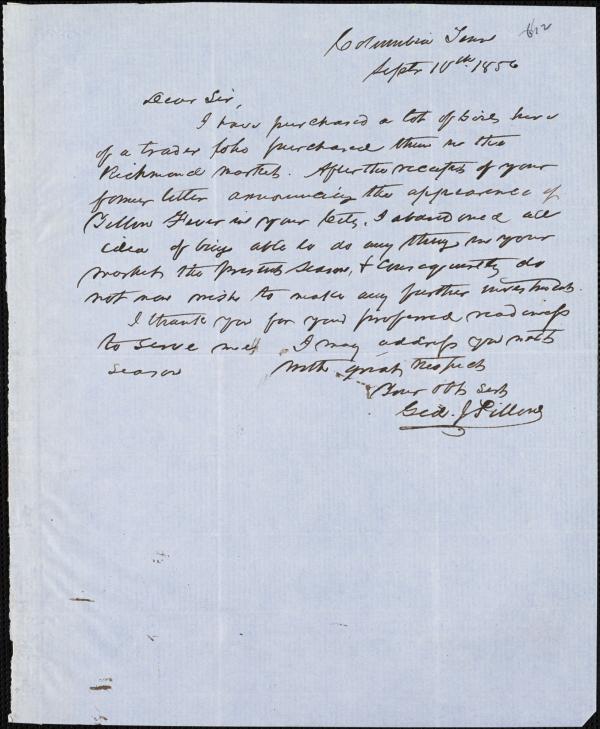 Columbia Tenn
Septr 10th 1856
Dear Sir,
I have purchased a lot of Girls here
of a trader who purchased them in the
Richmond market. After the receipt of your
former letter announcing the appearance of
Yellow Fever in your City, I abandoned all
idea of being able to do any thing in your
market the present season, & consequently do
not now wish to make any further investments.
I thank you for your proffered readiness
to serve me. I may address you next
season
With great respect
Your obt sert
Geo. J Pillow